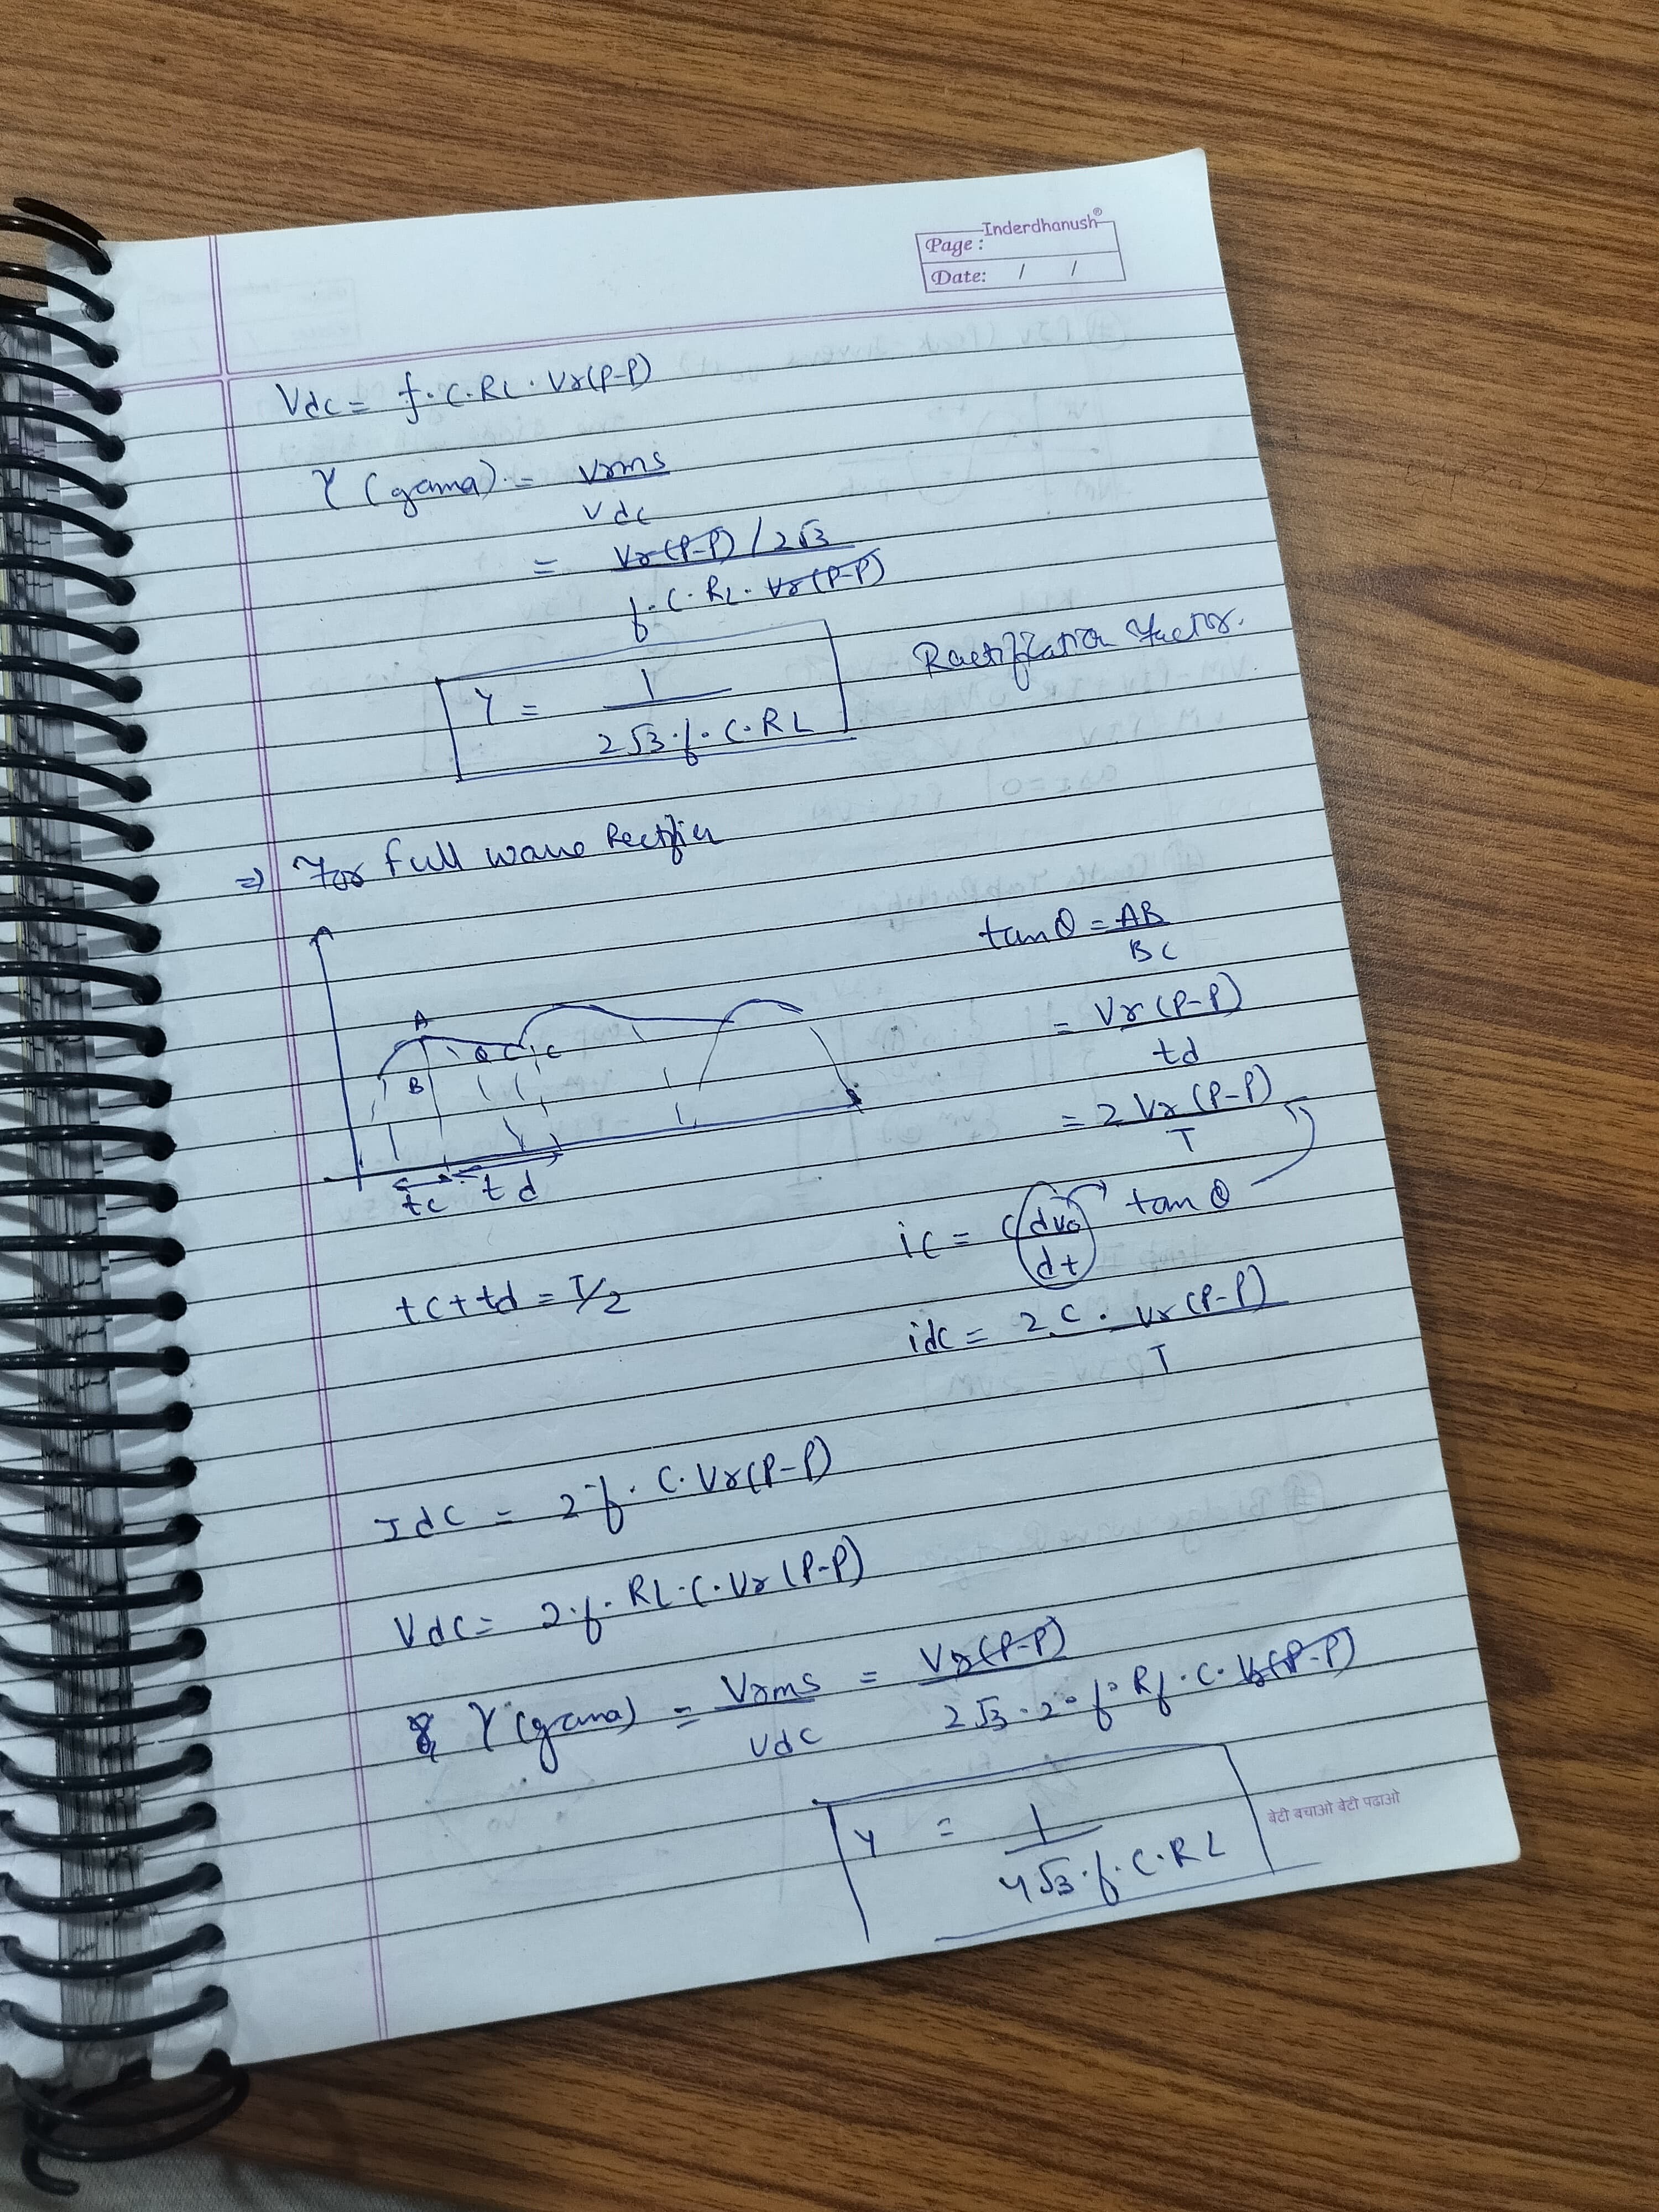 Inderdhanush®
Page :
Date: / /
Vdc = f · C · RL · Vr(P-P)
γ (gama) = Vrms / Vdc
= Vr(P-P) / 2√3 / f · C · RL · Vr(P-P)
γ = 1 / 2√3 · f · C · RL
Ractification factor.
⇒ For full wave Rectifier
tanθ = AB / BC
= Vr (P-P) / td
= 2 Vr (P-P) / T
A
B θ C C
tc td
tc + td = T/2
ic = C dvo / dt → tanθ
idc = 2 C · Vr (P-P) / T
Idc = 2 · f · C · Vr(P-P)
Vdc = 2 · f · RL · C · Vr (P-P)
γ (gama) = Vrms / Vdc = Vr(P-P) / 2√3 · 2 · f · Rf · C · Vr(P-P)
γ = 1 / 4√3 · f · C · RL
बेटी बचाओ बेटी पढाओ